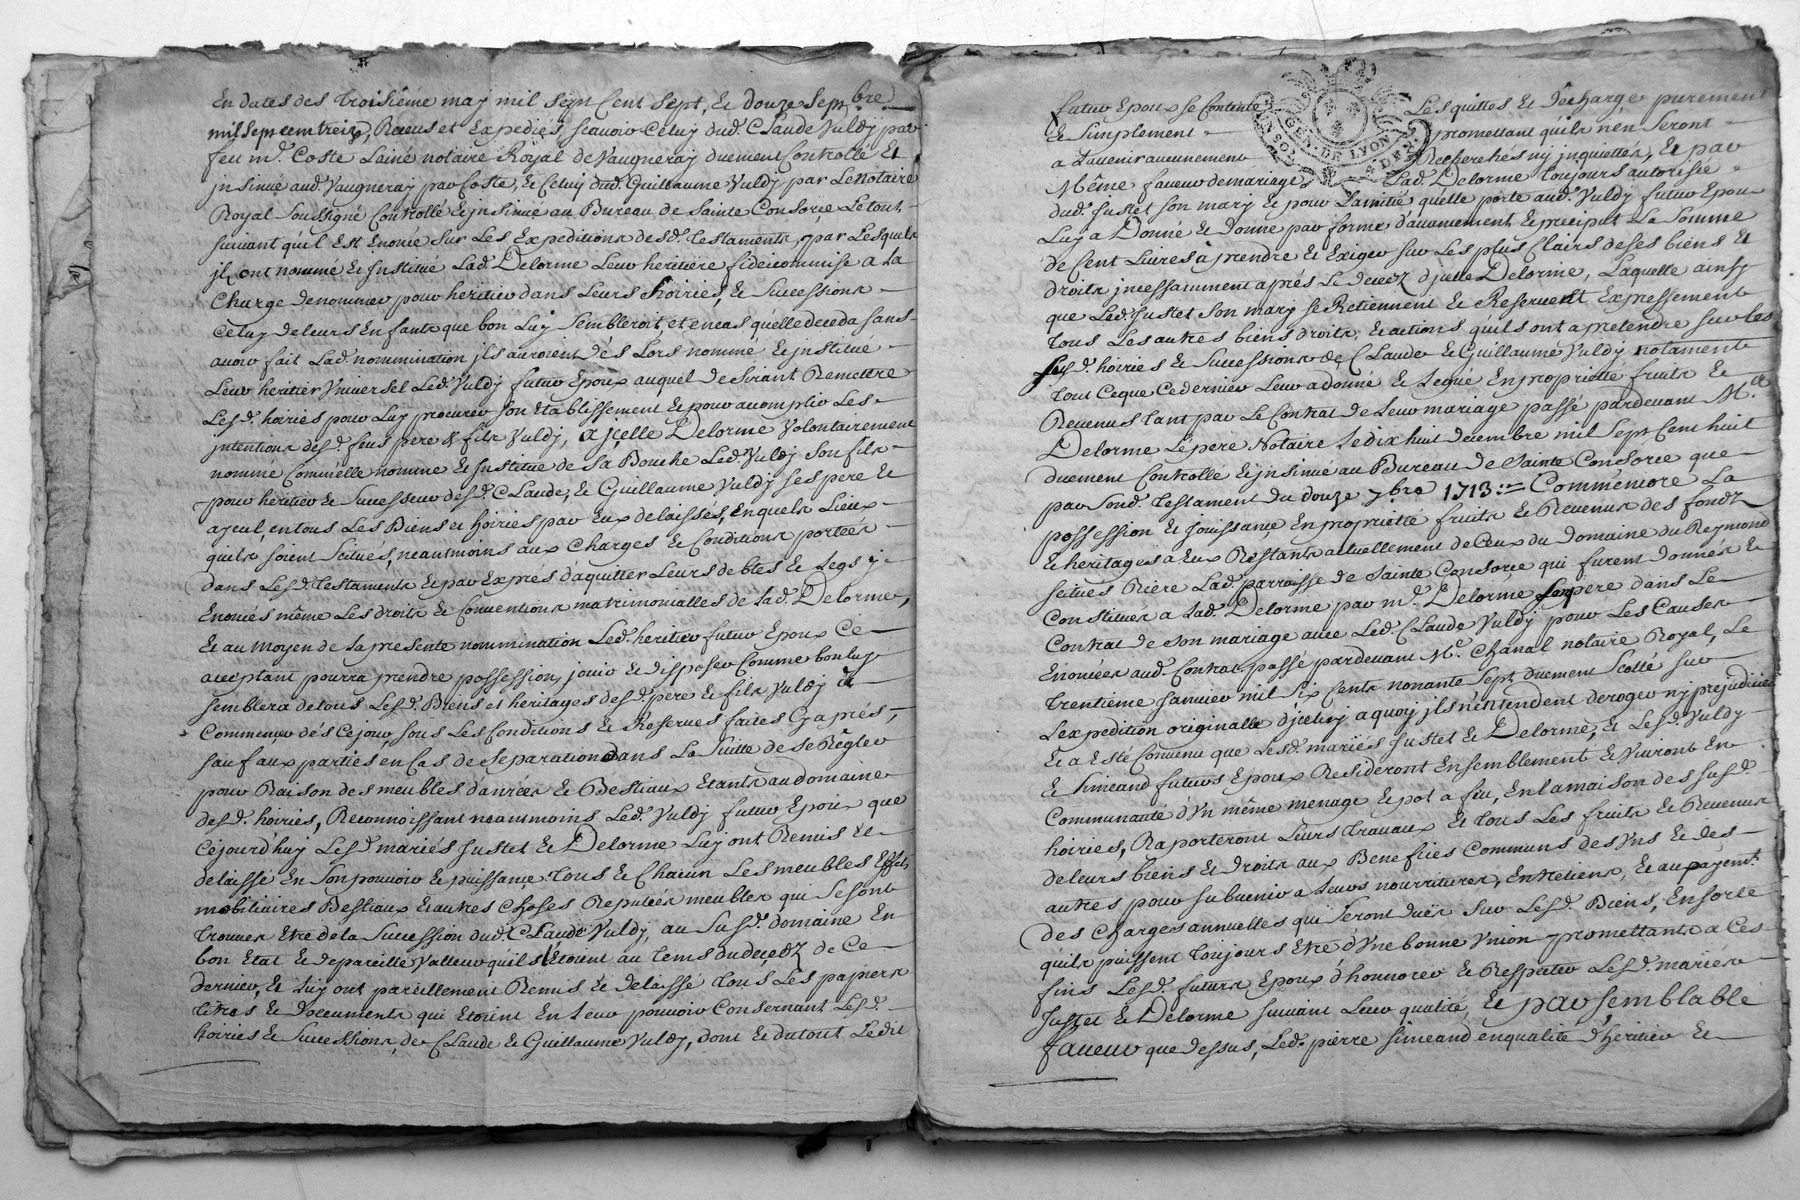 En dates des troisième may mil sept cent sept, et douze septbre
mil sept cent treize, Receus et Expediés, scavoir Celuy dud. Claude Vuldy par
feu me. Coste Lainé notaire Royal de Vaugneray duement Controllé et
jnsinué aud. Vaugneray par Coste, et Celuy dud. Guillaume Vuldy par Le Notaire
Royal Soussigné Controllé et jnsinué au Bureau de Sainte Consorce Le tout
suivant quil Est Enoncé sur Les Expeditions desd. testaments, par Lesquels
jls ont nommé et jnstitué Lad. Delorme Leur heritière fideicommise a La
Charge denommer pour heritier dans Leurs hoiries, et Successions
Celuy de leurs Enfants que bon Luy Sembleroit, et en cas quelle deceda sans
avoir fait Lad. nommination jls auroient dés Lors nommé et jnstitué
Leur heritier Vniversel Led. Vuldy futur Epoux auquel desirant Remettre
Lesd. hoiries pour Luy procurer son Etablissement et pour acomplir Les
jntentions desd. feus pere & fils Vuldy, a jcelle Delorme Volontairement
nommé Comm'elle nomme et jnstitue de sa Bouche Led. Vuldy son fils
pour heritier et Successeur desd. Claude, et Guillaume Vuldy ses pere et
ayeul, en tous Les Biens et hoiries par Eux delaissés, En quels Lieux
quils soient Scitués, neantmoins aux Charges et Conditions portées
dans Lesd. testaments et par Exprés d'aquitter Leurs debtes et Legs y
Enoncés même Les droits et Conventions matrimonialles de Lad. Delorme,
Et au moyen de La presente nommination Led. heritier futur Epoux Ce
acceptant pourra prendre possession, jouir et disposer Comme bon luy
semblera de tous Lesd. Biens et heritages desd. pere et fils Vuldy à
Commencer dés Cejour, sous Les Conditions et Reserves faites Cy aprés,
sauf aux parties en Cas de separation dans La Suitte de se Régler
pour Raison des meubles danrées et Bestiaux Etants au domaine
desd. hoiries, Reconnoissant neantmoins Led. Vuldy futur Epoux que
Cejourd'huy Lesd. mariés Justet et Delorme Luy ont Remis et
delaissé En son pouvoir et puissance tous et Chacun Les meubles Effets
mobiliaires Bestiaux et autres choses Reputées meubles qui Se sont
trouvés Etre de la Succession dud. Claude Vuldy, au Susd. domaine En
bon Etat et de pareille Valleur quils Etoient au tems du decedz de Ce
dernier, et Luy ont pareillement Remis et delaissé tous Les papiers
titres et Documents qui Etoient En Leur pouvoir Consernant Lesd.
hoiries et Successions, de Claude et Guillaume Vuldy, dont et du tout Ledit
futur Epoux se Contente Les quittes et décharge purement
et Simplement promettant quils n'en Seront
a Lavenir aucunement Recherchés ny jnquiettés, et par
Même faveur de mariage Lad. Delorme toujours autorisée
dud. Justet son mary et pour Lamitié quelle porte aud. Vuldy futur Epoux
Luy a Donné et Donne par forme d'avancement et preciput La Somme
de Cent Livres à prendre et Exiger sur Les plus Clairs de ses biens et
droits jncessamment aprés Le decedz djcelle Delorme, Laquelle ainsy
que Led. Justet son mary se Retiennent et Reservent Expressement
tous Les autres biens droits, et actions quils ont a pretendre sur les
susd. hoiries et Successions de Claude et Guillaume Vuldy notament
tout Ceque Ce dernier Leur a donné et Legué En proprietté fruits et
Revenus tant par Le Contrat de Leur mariage passé pardevant Me.
Delorme Le pere Notaire Le dix huit decembre mil sept Cent huit
duement Controllé et jnsinué au Bureau de Sainte Consorce que
par Sond. testament du douze 7bre 1713 := Comm'encore La
possession et Jouissance En proprietté fruits et Revenus des fondz
et heritages a Eux Restants actuellement de Ceux du Domaine du Reymond
scitués Riere Lad. parroisse de Sainte Consorce qui furent donnés et
Constitués a Lad. Delorme par me. Delorme son pere dans Le
Contrat de son mariage avec Led. Claude Vuldy pour Les Causes
Enoncées aud. Contrat passé pardevant Me. Chanal notaire Royal, Le
trentieme Janvier mil six cents nonante sept, duement Scellé sur
Lexpedition originalle d'jceluy a quoy jls n'entendent deroger ny prejudicier
Et a Esté Convenu que Lesd. mariés Justet et Delorme, et Lesd. Vuldy
et Simeand futurs Epoux Resideront Ensemblement et Vivront En
Communauté d'Vn même menage et pot a feu, En la maison des susd.
hoiries, Raporteront Leurs travaux et tous Les fruits et Revenus
de leurs biens et droits aux Benefices Communs des Vns et des
autres pour subvenir a Leurs nourritures, Entretiens, et au payemt.
des Charges annuelles qui seront dües Sur Lesd. Biens, Ensorte
quils puissent toujours Etre d'Vne bonne Vnion promettants a Ces
fins Lesd. futurs Epoux d'honnorer et Respecter Lesd. mariés
Justet et Delorme suivant Leur qualité, et par semblable
faveur que dessus, Led. pierre Simeand en qualité d'heritier et